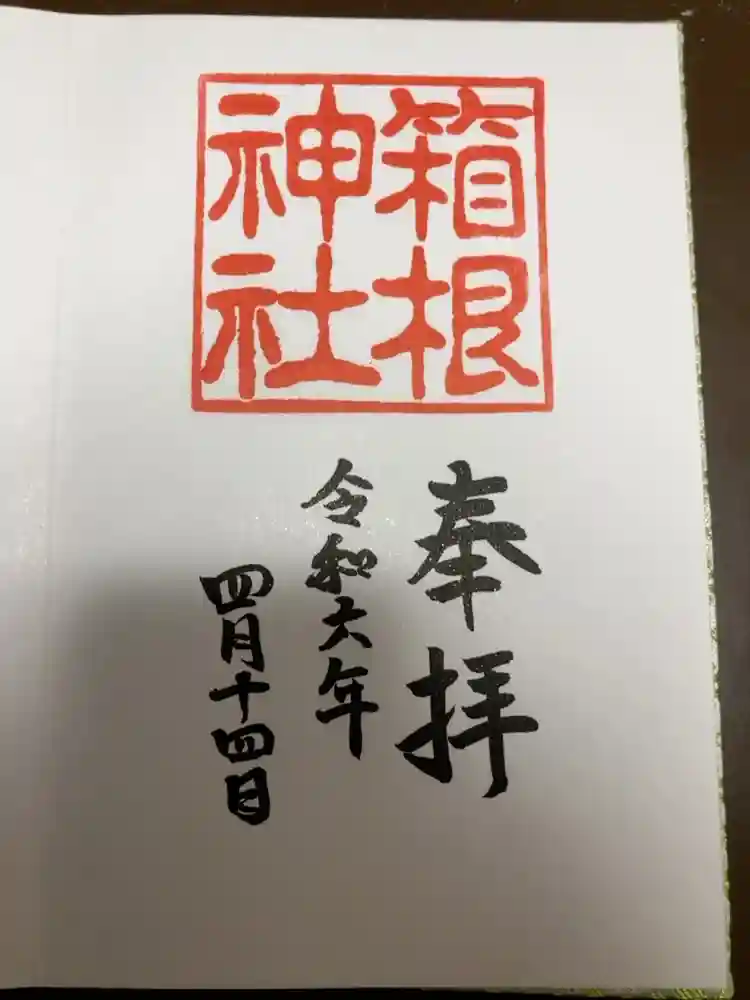 箱根
神社
奉拝
令和六年
四月十四日